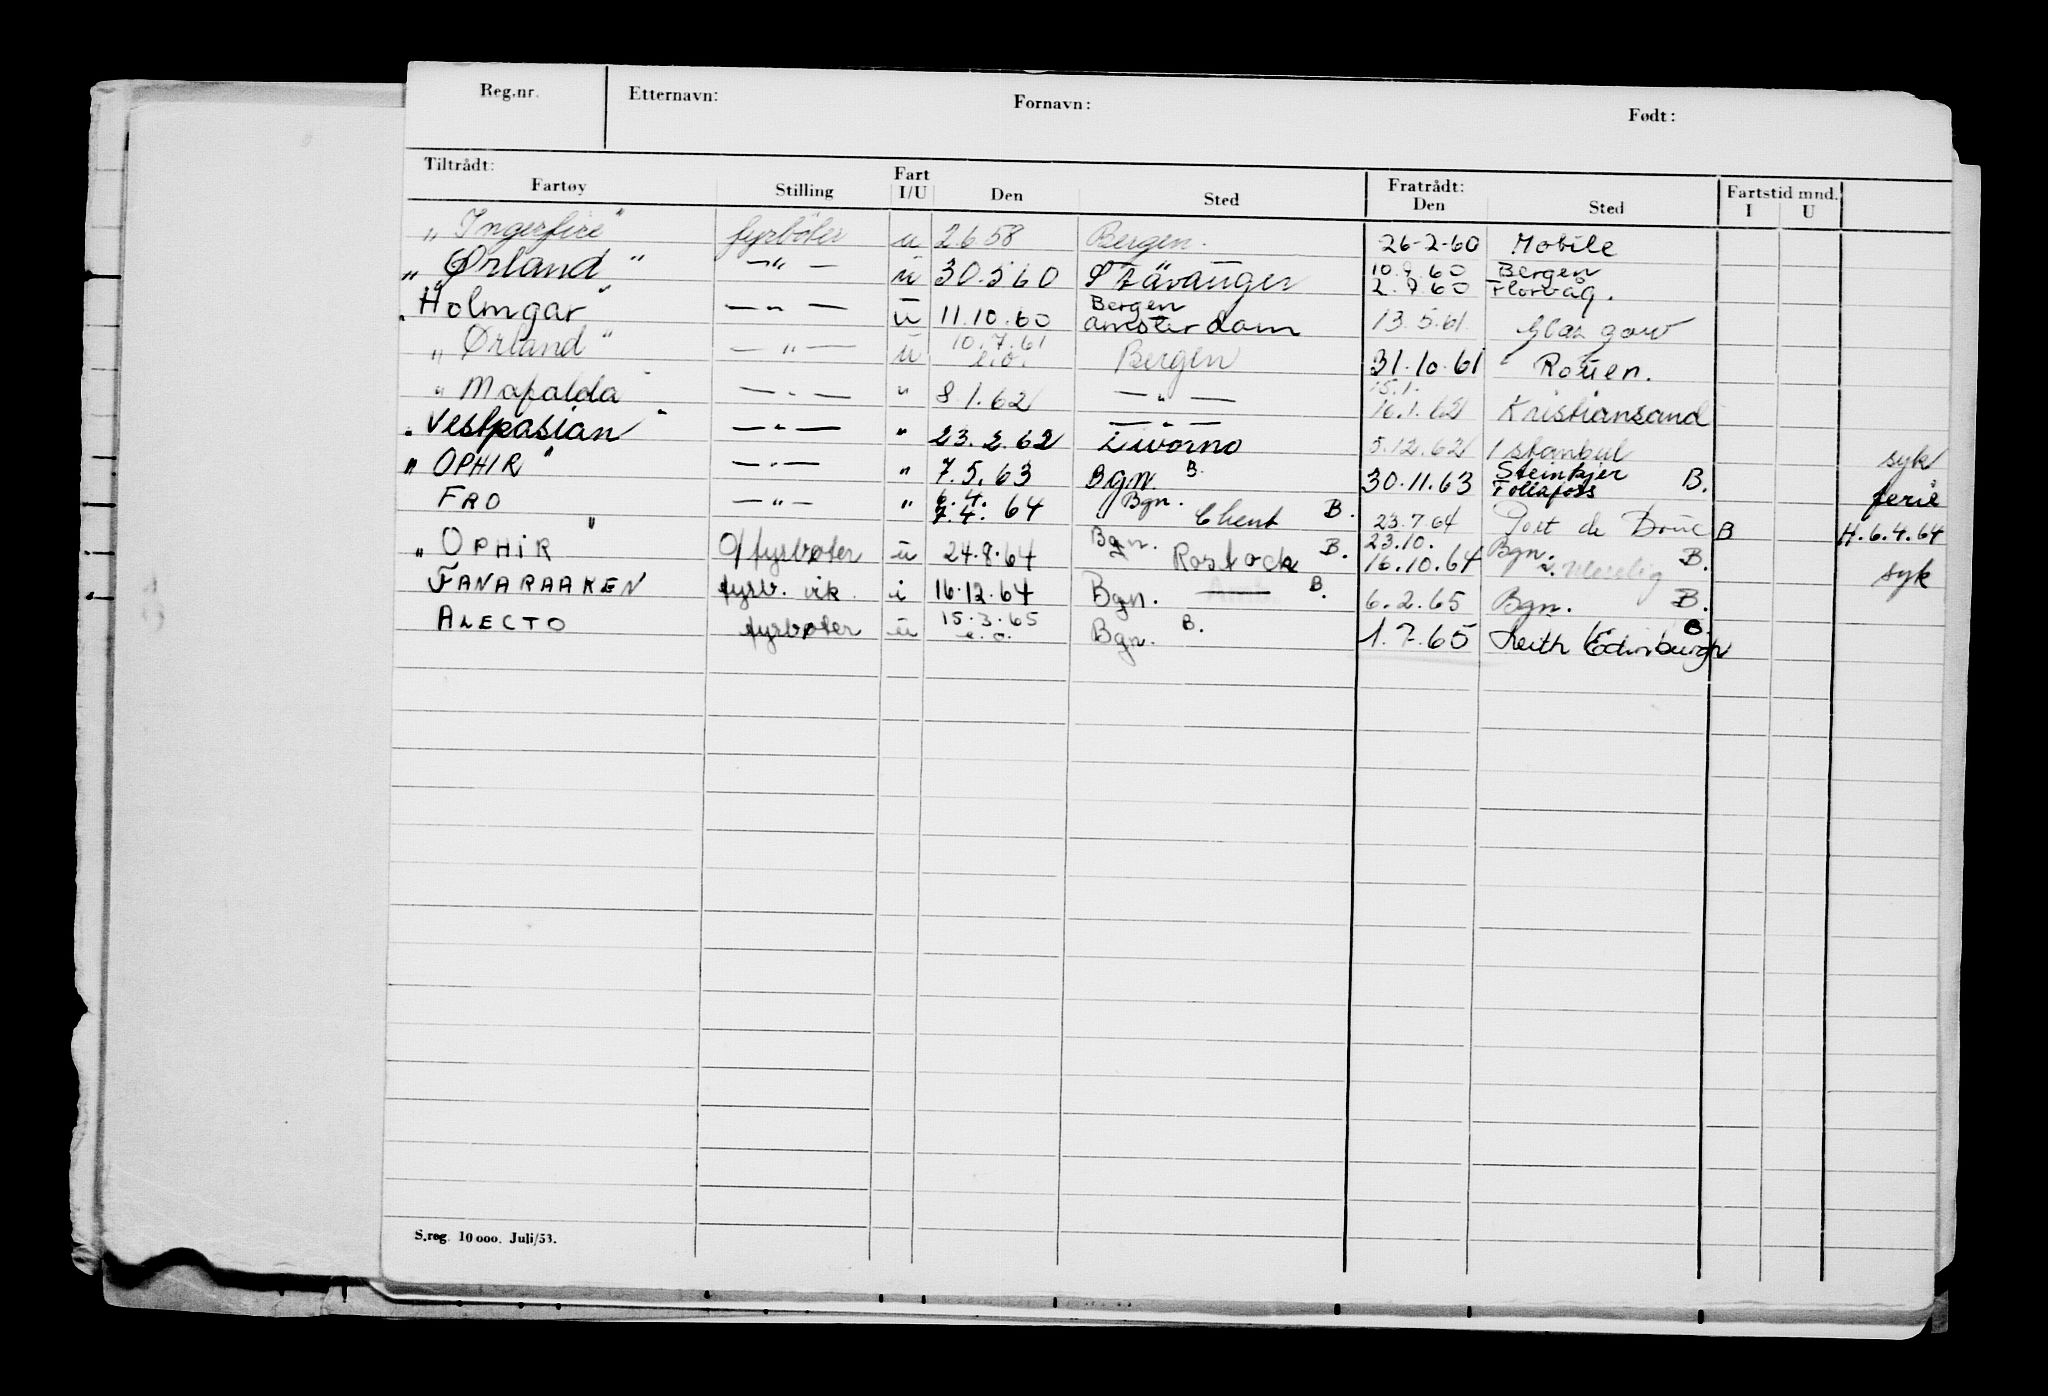 Reg.nr. Etternavn: Fornavn: Født:
Tiltrådt: Fart Fratrådt: Fartstid mnd.
Fartøy Stilling I/U Den Sted Den Sted I U
„ Ingerfire " fyrbøter u 2.6.58 Bergen. 26-2-60 Mobile
„ Ørland " — " — u 30.5 60 Stavanger 10.9.60 Bergen
2.9.60 Florvåg.
"Holmgar" — " — u 11.10.60 Bergen
Amsterdam 13.5.61. Glasgow
„ Ørland " — " — u 10.7.61
e.o. Bergen 31.10.61 Rouen.
" Mafalda " — " — " 8.1.62 — " — 15.1.
16.1.62 Kristiansand
" Vestpasian " — " — " 23.2.62 Livorno 5.12.62 Istanbul syk
" OPHIR " — " — " 7.5.63 Bgn B. 30.11.63 Steinkjer
Follafoss B. ferie
FRO — " — " 6.4.
7.4. 64 Bgn. Ghent B. 23.7.64 Port de Bouc B H.6.4.64
„ OPHIR " fyrbøter u 24.8.64 Bgn. Rostock B. 23.10.
16.10.64 Bgn. B. syk
FANARAAKEN fyrb. vik. i 16.12.64 Bgn. B. 6.2.65 Bgn. B.
ALECTO fyrbøter u 15.3.65
e.o. Bgn. B. 1.7.65 Leith Edinburgh B.
S.reg. 10 000. Juli/53.